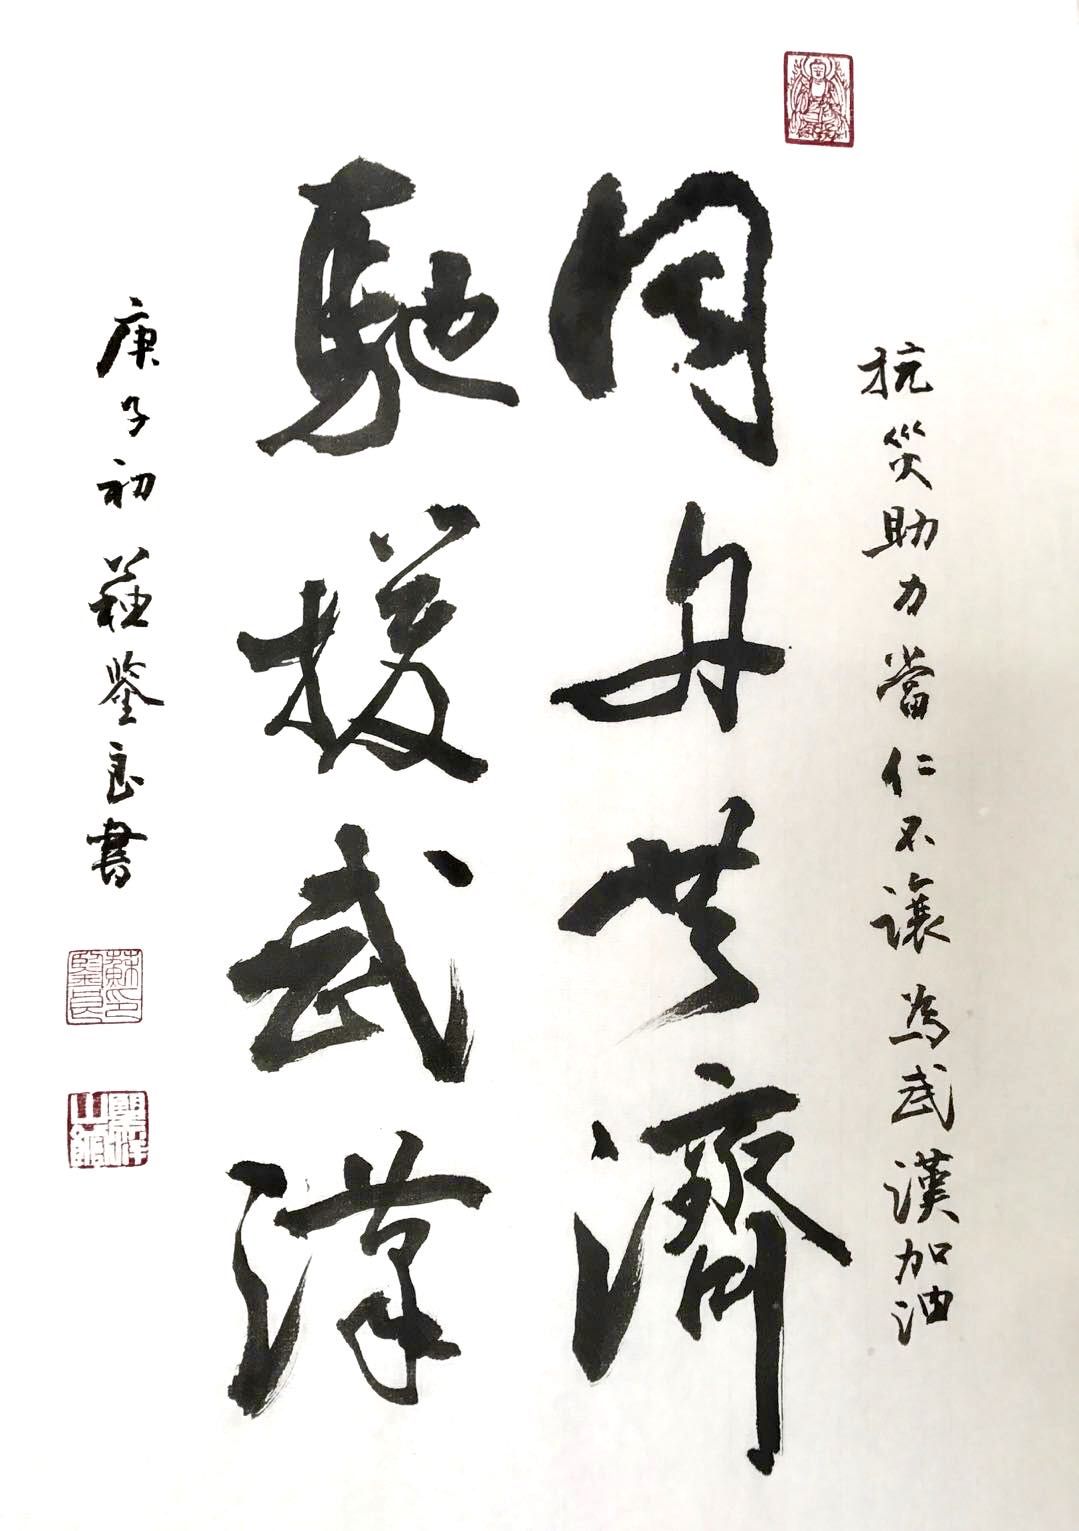 抗災助力當仁不讓為武漢加油
同舟共濟
馳援武漢
庚子初蘇鑒良書
蘇鑒良印